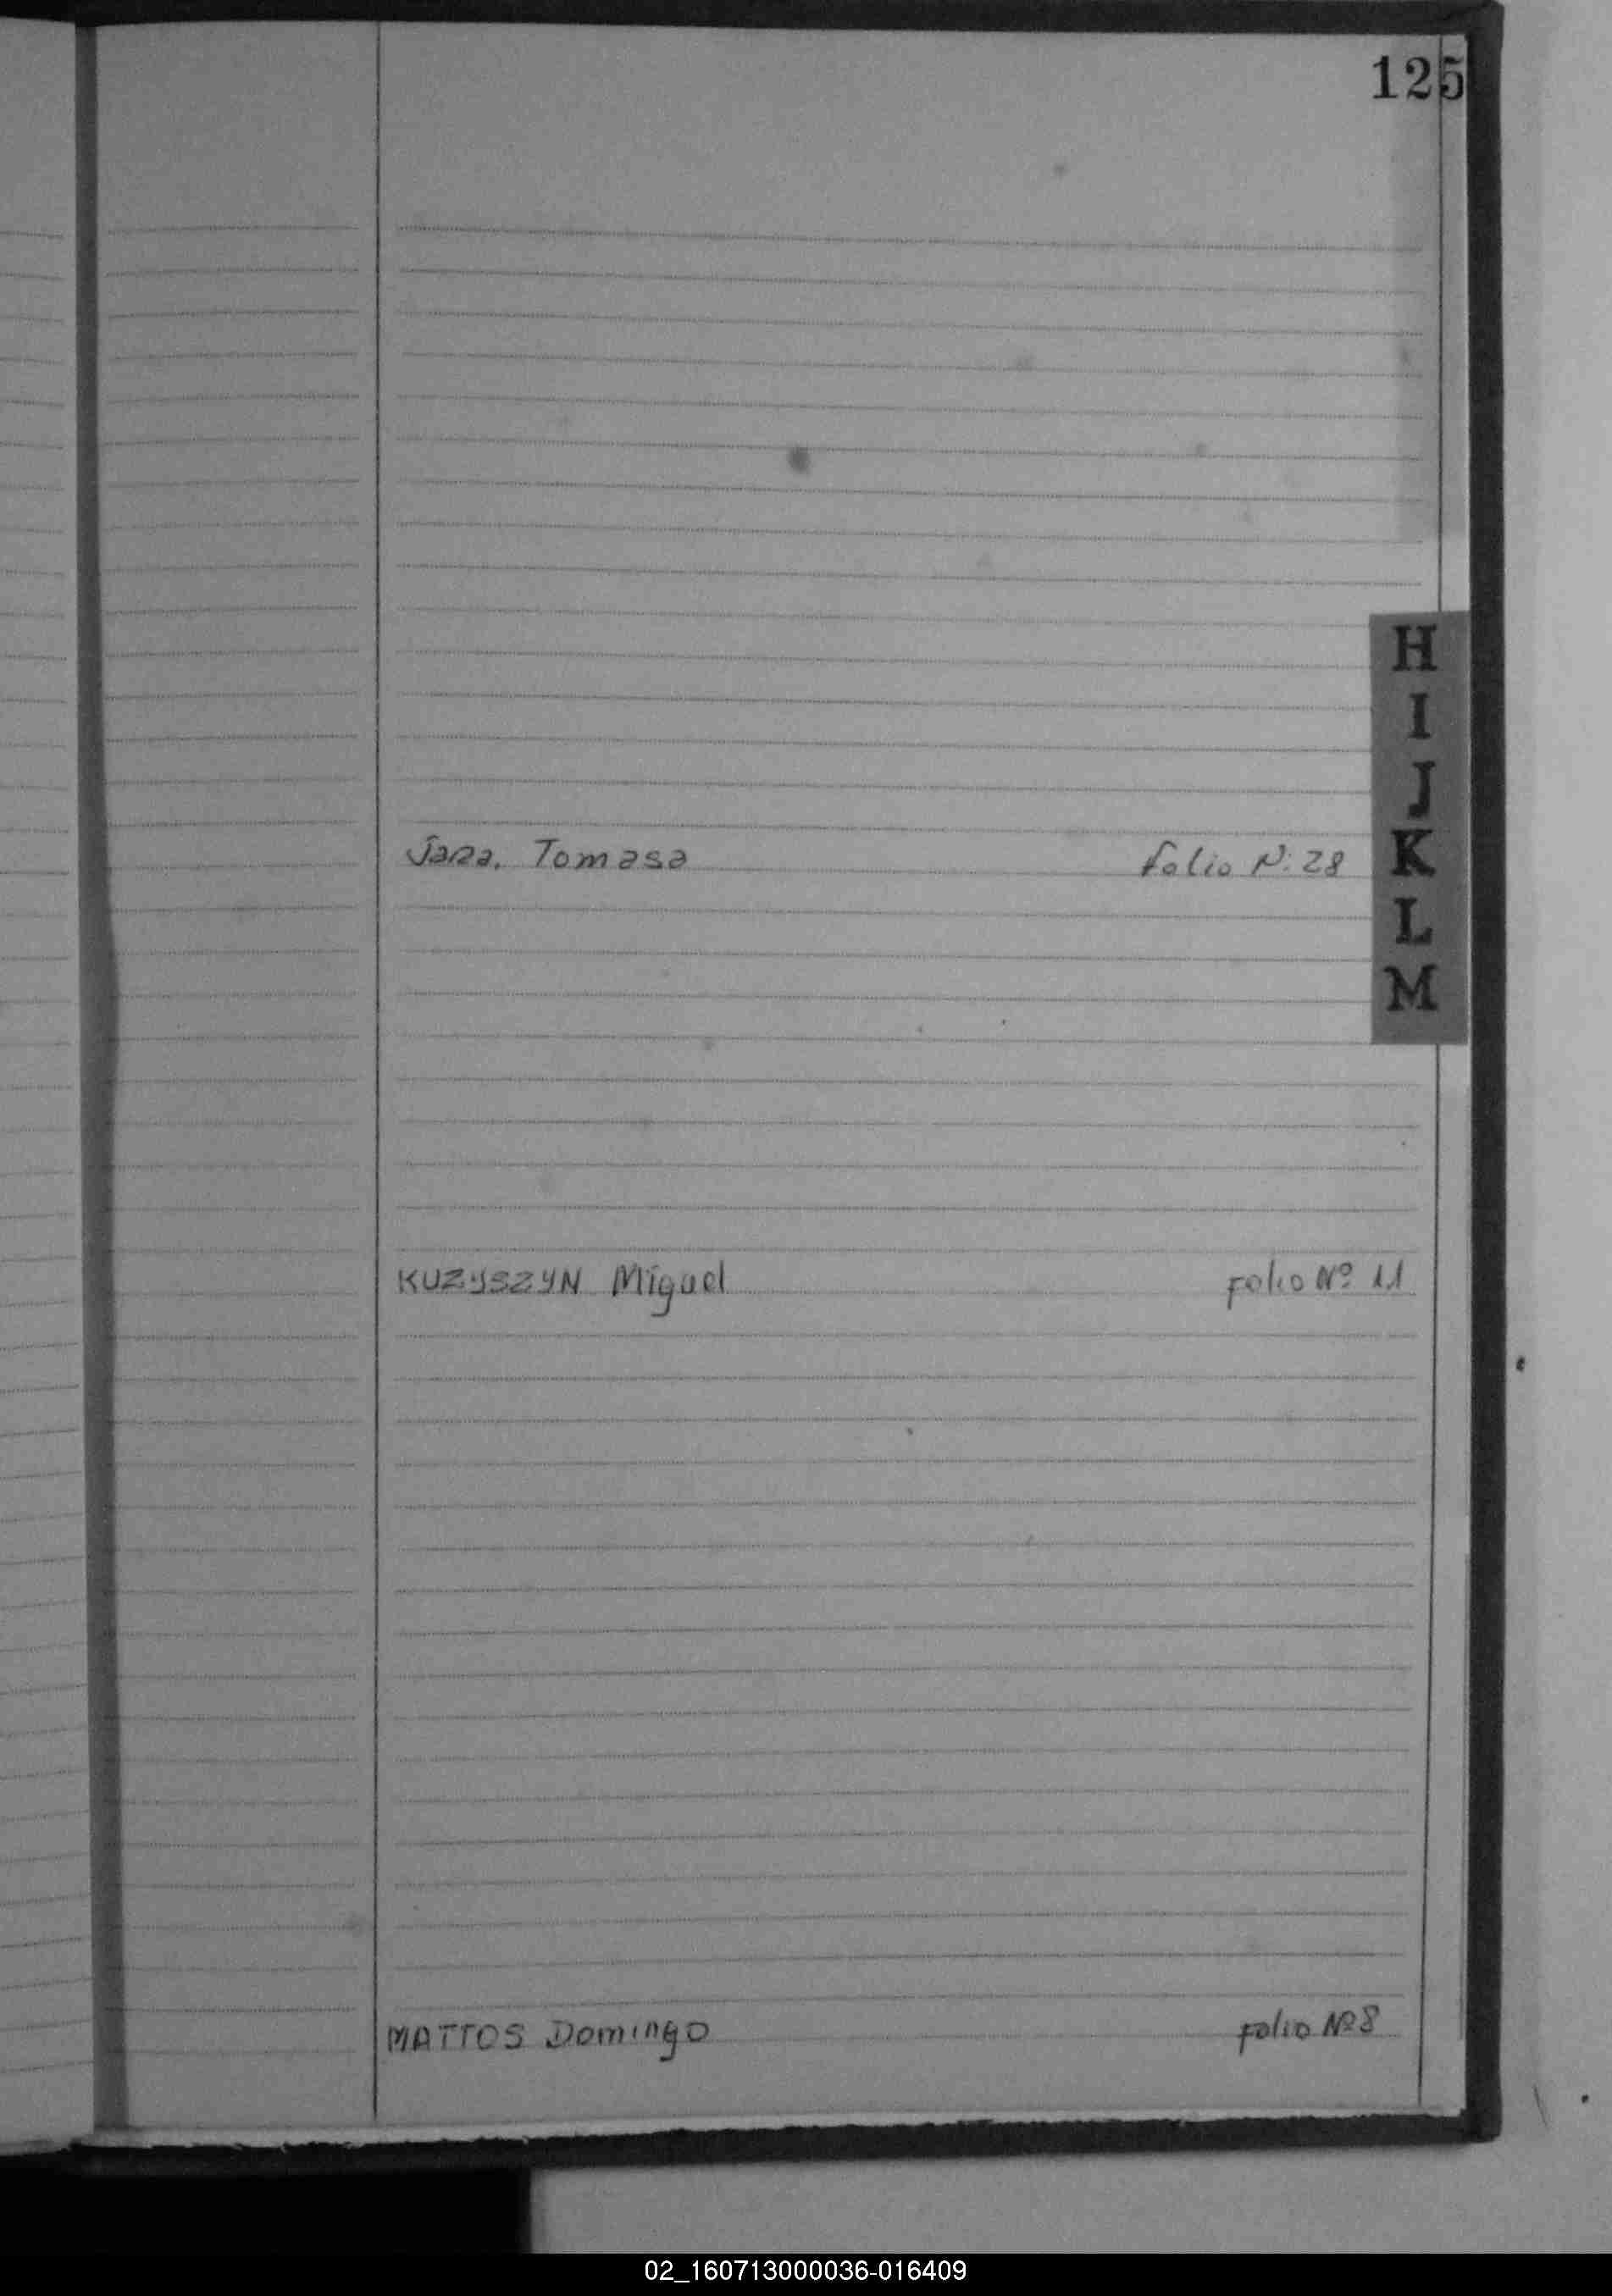 125
H
I
J
Jara. Tomasa folio N: 28
K
L
M
KUZYSZYN Miguel folio Nº 11
MATTOS Domingo folio Nº 8
02_160713000036-016409